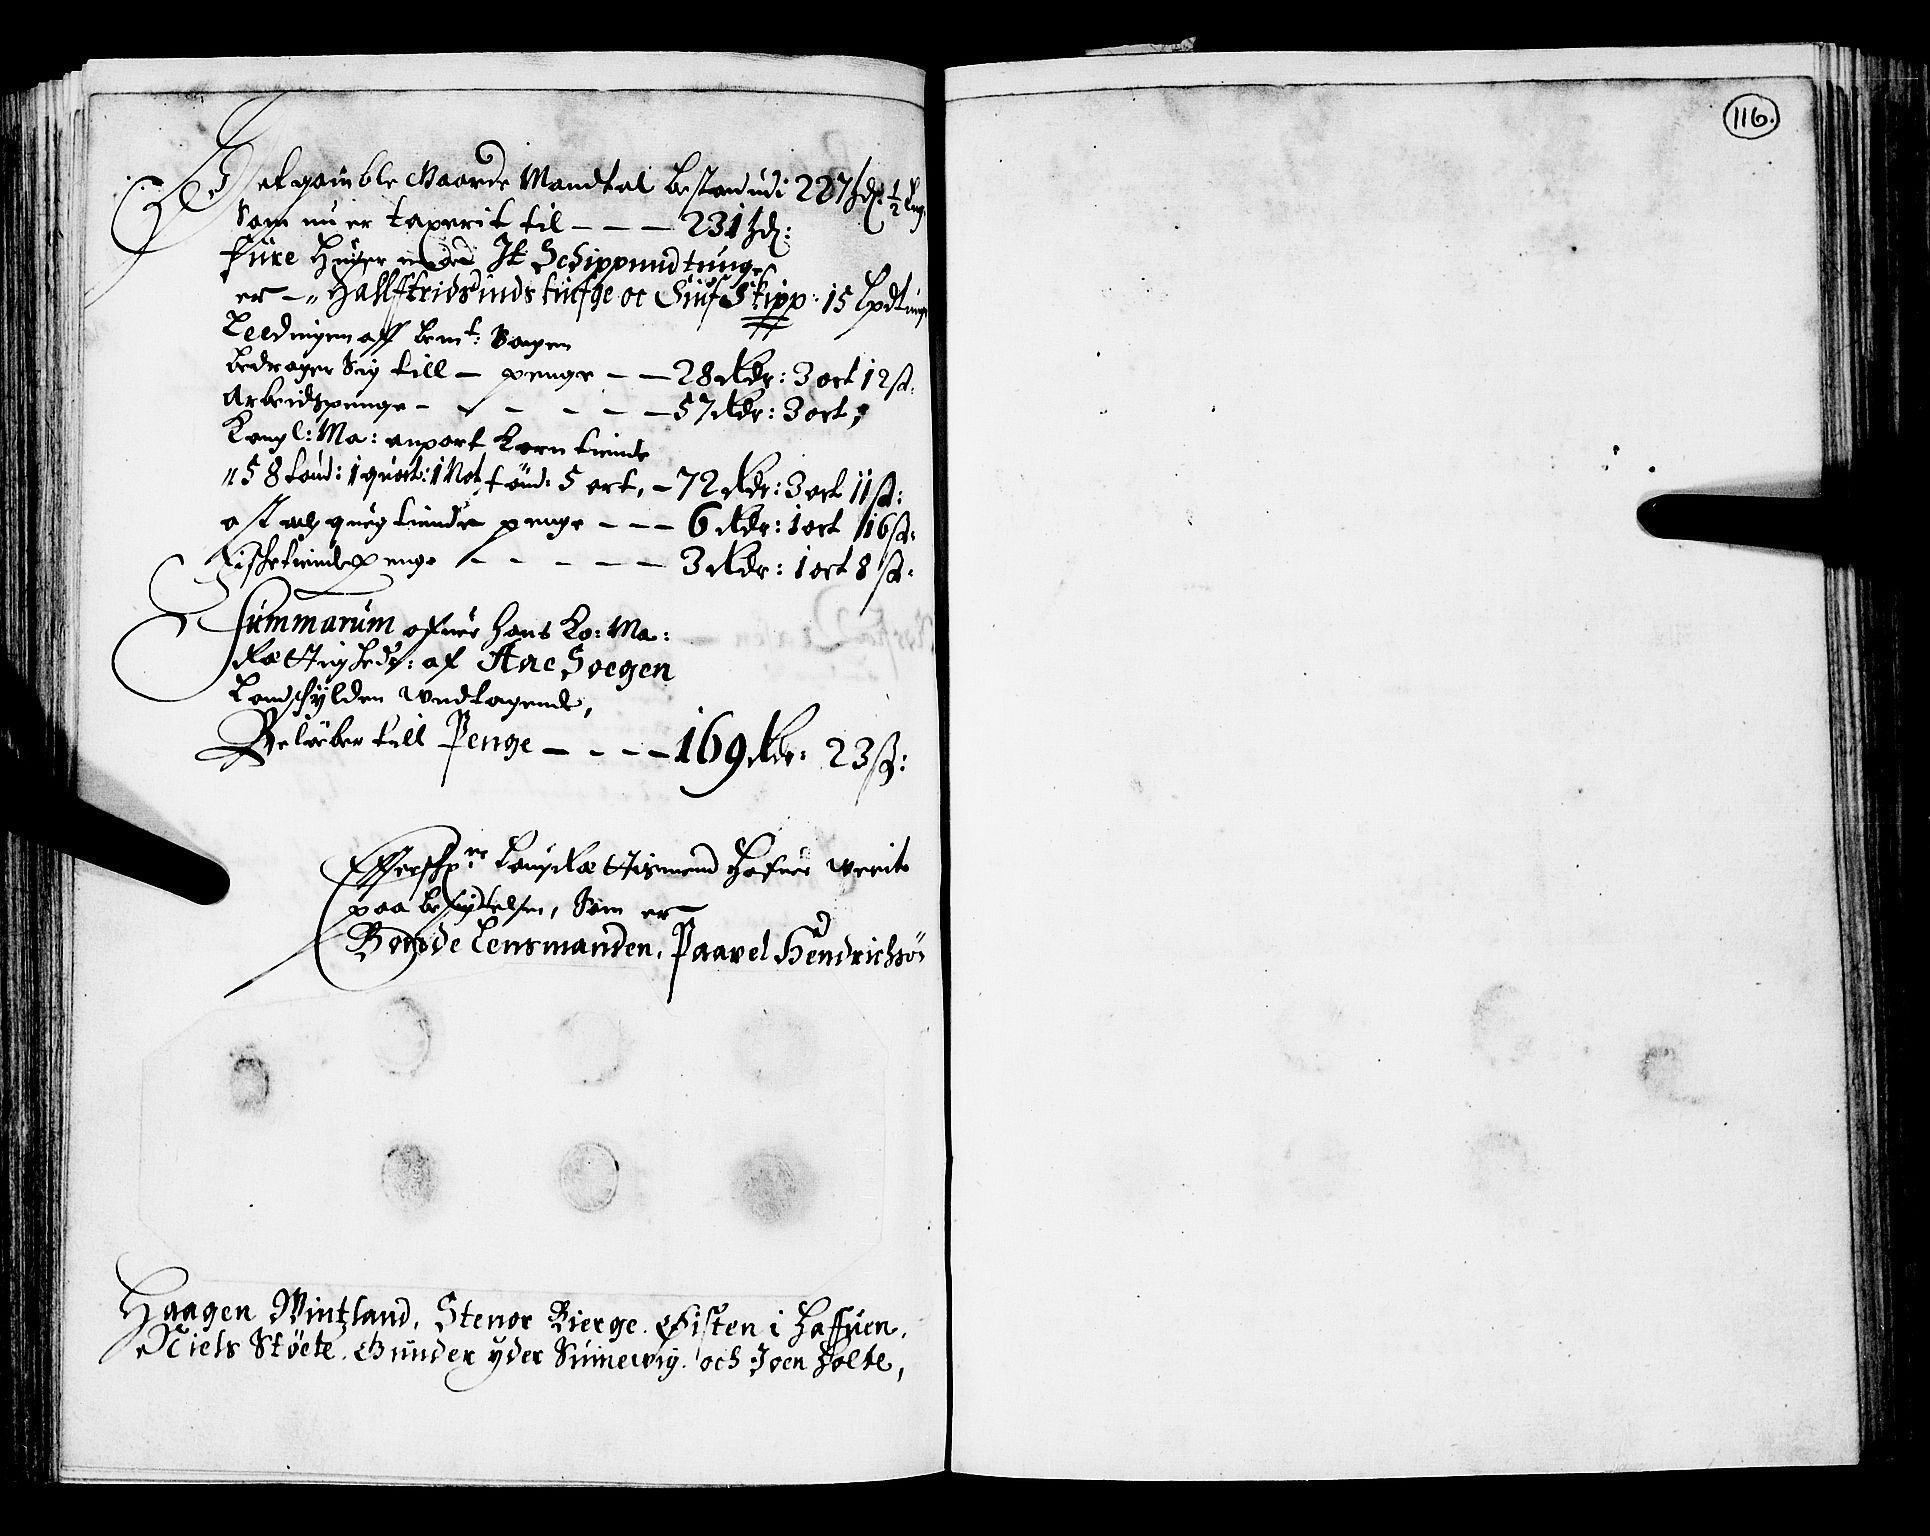 116.
Det gamble Gaarde Mandtal bestand udi 227 hd: ½ Eng:
Som nu er taxerit til - - - 231 hd:
füre Huser Jt Schippund tunge
er - Hallftridsindstiufge oc Siuf Skipp: 15 Lpd tunge
Leedingen aff bemt: Sogen
bedrager Sig till - penge - - 28 Rdr: 3 ort 12 ß:
Arbeidspenge - - - - - - 57 Rdr: 3 ort,
Kongl: Ma: anpart Korn tiende
58 tønd: 1 quart: 1 tönd: 5 ort, - 72 Rdr: 3 ort 11 ß:
ost och queg tiende penge - - - 6 Rdr: 1 ort 16 ß:
Fischetiende penge - - - - - 3 Rdr: 1 ort 8 ß:
Summarum ofuer hans Ko: Ma:
Rettighedr: af Aae Soegen
Landschylden undtagende,
Beløber till Penge - - - - 169 Rdr: 23 ß:
Effterschne Laugrettismend hafuer werit
paa besigtelsen, Som er
Bonde Lensmanden, Paavel Hendrichsön
Haagen Wintzland, Stenor Bierge. Gisten i Haffuen,
Niels Stöete. Gunder yder Sumewig. och Joen Holte,